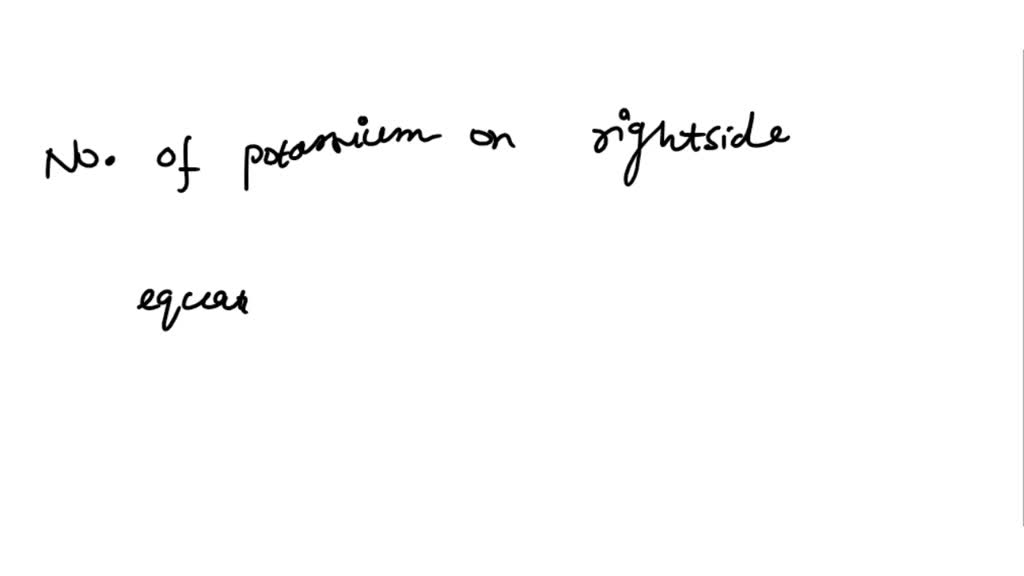 No. of potassium on rightside
equa